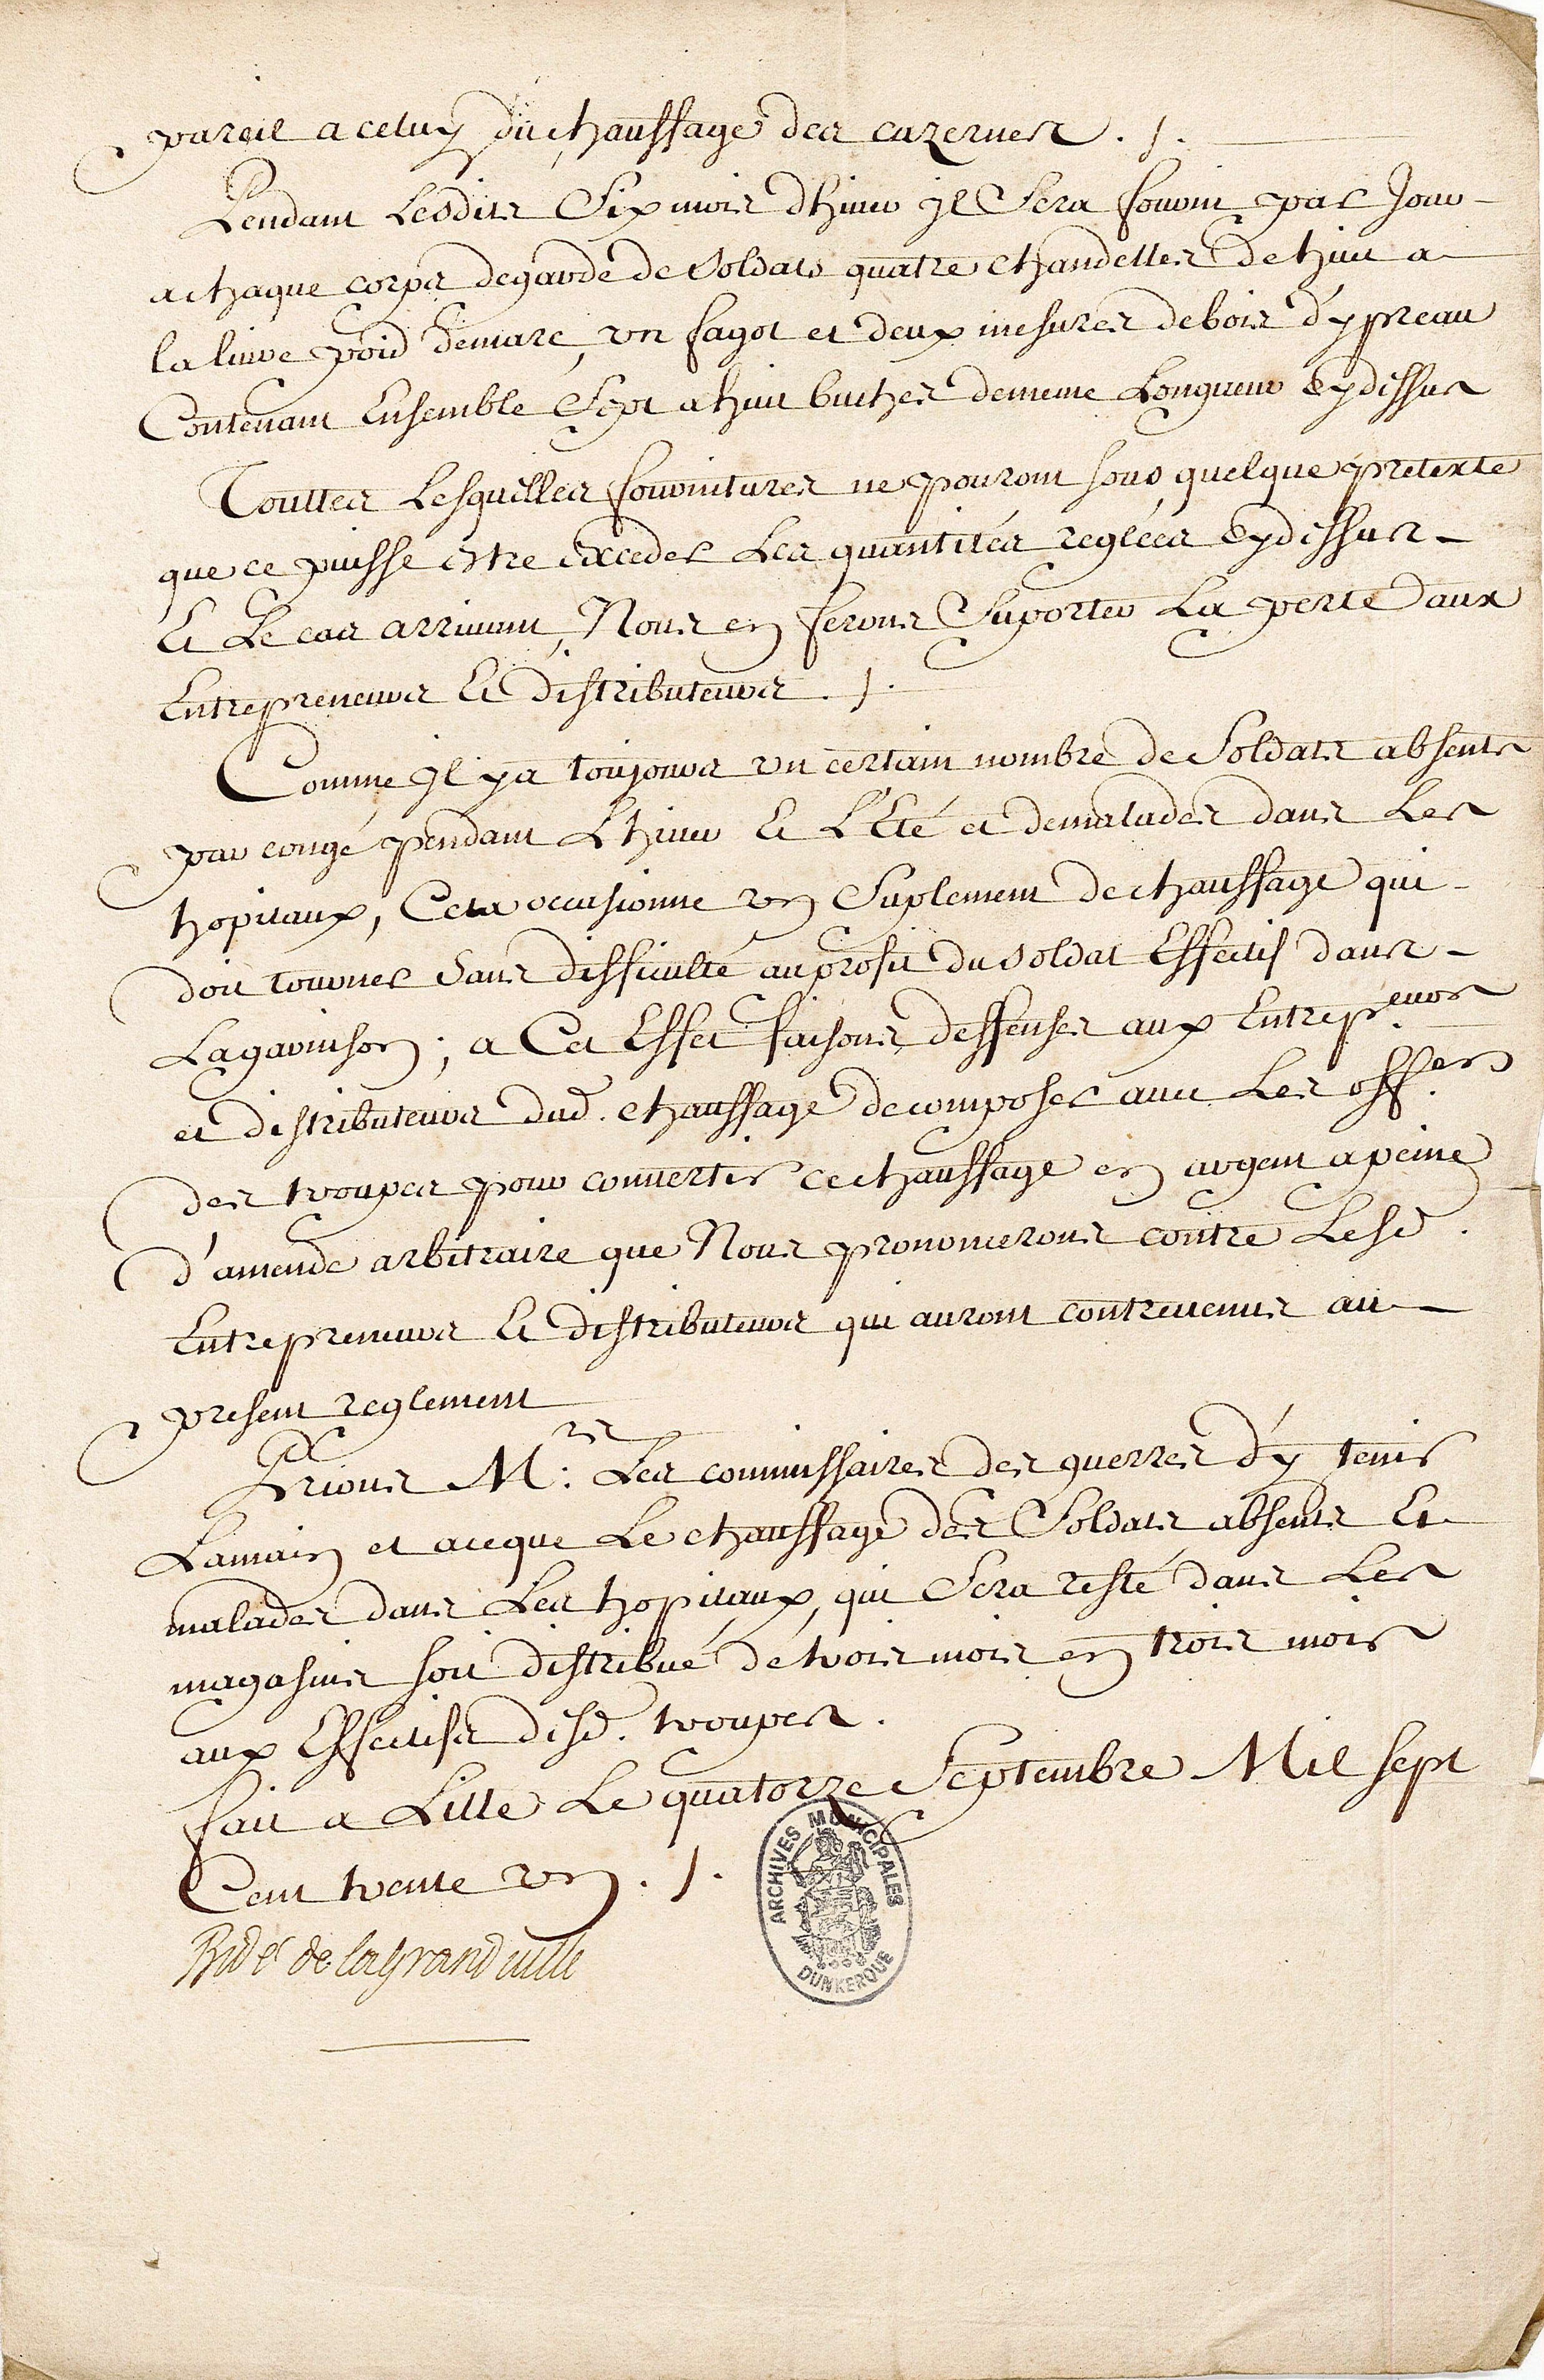 pareil a celuy du chauffage des cazernes . /.
Pendant Lesdits Six mois dhiuer jl Sera fourni par Jour
a chaque corps degarde de Soldats quatre chandelles de huit a
la liure poid demarc, vn fagot et deux mesures debois d'ypreau
Contenant Ensemble Sept a huit buches demême Longueur Cydessus
Touttes Lesquelles fournitures ne pouront sous quelque pretexte
que ce puisse estre exceder Les quantités reglées Cydessus
Et Le cas arriuant, Nous en ferons Suporter La perte aux
Entrepreneurs Et distributeurs . /.
Comme jl ya toujours vn certain nombre de Soldats absents
par congé pendant L'hiuer Et L'Eté et demalades dans Les
hopitaux, Cela occasionne vn Suplement de chauffage qui
doit tourner Sans difficulté au profit du Soldat Effectif dans
La garnison ; a Cet Effet faisons deffenses aux Entrep.eurs
et distributeurs dud. chauffage de composer auec Les off.ers
des troupes pour conuertir ce chauffage en argent apeine
d'amende arbitraire que Nous prononcerons contre Lesd.
Entrepreneurs Et distributeurs qui auront contreuenus au
present reglement
Prions M.rs Les commissaires des guerres d'y tenir
Lamain et aceque Le chauffage des Soldats absents Et
malades dans Les hopitaux, qui Sera resté dans Les
magasins soit distribué de trois mois en trois mois
aux Effectifs desd. troupes .
fait a Lille Le quatorze Septembre Mil sept
Cent trente vn . /.
Bidé de lagranduille
ARCHIVES MUNICIPALES
DUNKERQUE